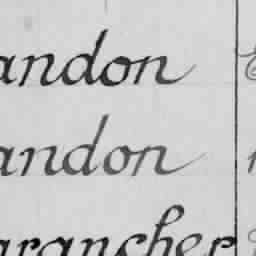 andon
andon
arancher